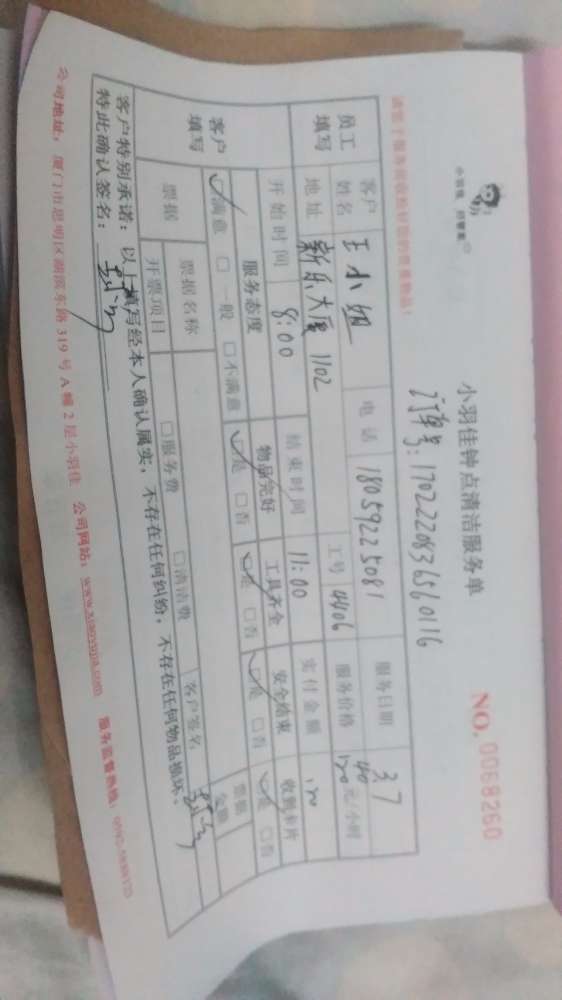 小羽佳 洁管家
小羽佳钟点清洁服务单
NO. 0068260
订单号: 1702220836560116
员工填写
客户姓名 王小姐 电话 18059225081 服务日期 3.7
地址 新乐大厦 1102 工号 4406 服务价格 40 元/小时
开始时间 8:00 结束时间 11:00 实付金额 120
客户填写
服务态度 物品完好 工具齐全 安全结束 收到卡片
☑满意 □一般 □不满意 ☑是 □否 ☑是 □否 ☑是 □否 ☑是 □否
票据 票据名称 客户签名 票据金额
开票项目 □服务费 □清洁费
客户特别承诺：以上填写经本人确认属实，不存在任何纠纷，不存在任何物品损坏，
特此确认签名：
公司地址：厦门市思明区湖滨东路 319 号 A 幢 2 层小羽佳 公司网站：www.xiaoyujia.com 服务监督热线：